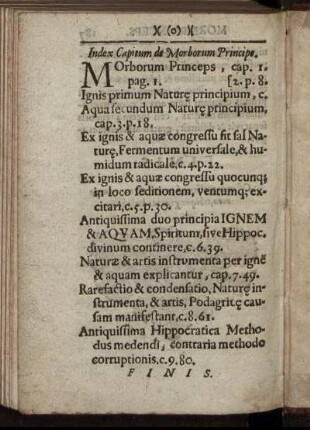 X (o) X
Index Capitum de Morborum Principe.
MOrborum Princeps, cap. 1.
pag. 1. [2. p. 8.
Ignis primum Naturę principium, c.
Aqua secundum Naturę principium,
cap. 3. p. 18.
Ex ignis & aquæ congressu fit sal Na-
turę, Fermentum universale, & hu-
midum radicale, c. 4. p. 22.
Ex ignis & aquæ congressu quocunq;
in loco seditionem, ventumq; ex-
citari, c. 5. p. 30.
Antiquissima duo principia IGNEM
& AQVAM, Spiritum, sive Hippoc.
divinum continere, c. 6. 39.
Naturæ & artis instrumenta per ignē
& aquam explicantur, cap. 7. 49.
Rarefactio & condensatio, Naturę in-
strumenta, & artis, Podagrıtę cau-
sam manifestant, c. 8. 61.
Antiquissima Hippocratica Metho-
dus medendi, contraria methodo
corruptionis. c. 9. 80.
FINIS.